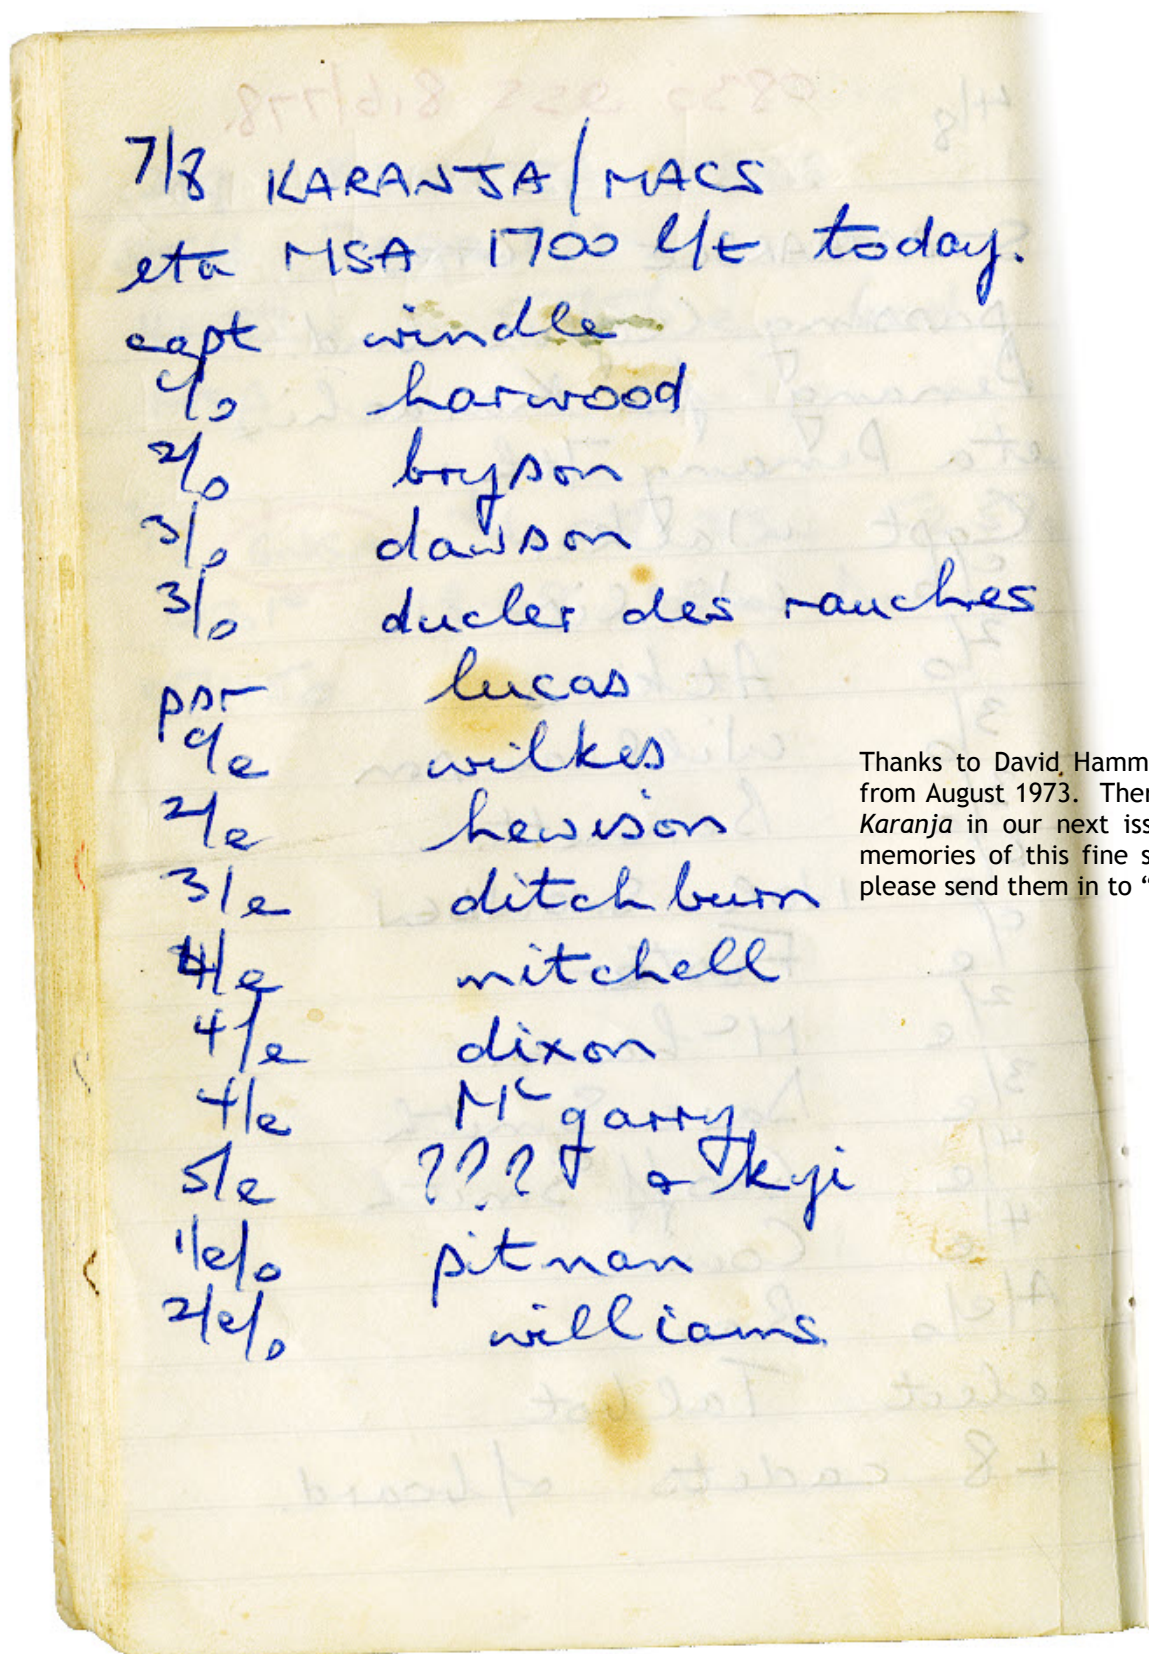 7/8 KARANJA/MACS
eta MSA 1700 l/t today.
capt windle
c/o harwood
2/o bryson
3/o dawson
3/o ducler des rauches
psr lucas
c/e wilkes
2/e hewison
3/e ditchburn
4/e mitchell
4/e dixon
4/e Mc garry
5/e ??? & kyi
1/e/o pitman
2/e/o williams.
Thanks to David Hamm
from August 1973. Ther
Karanja in our next iss
memories of this fine s
please send them in to “